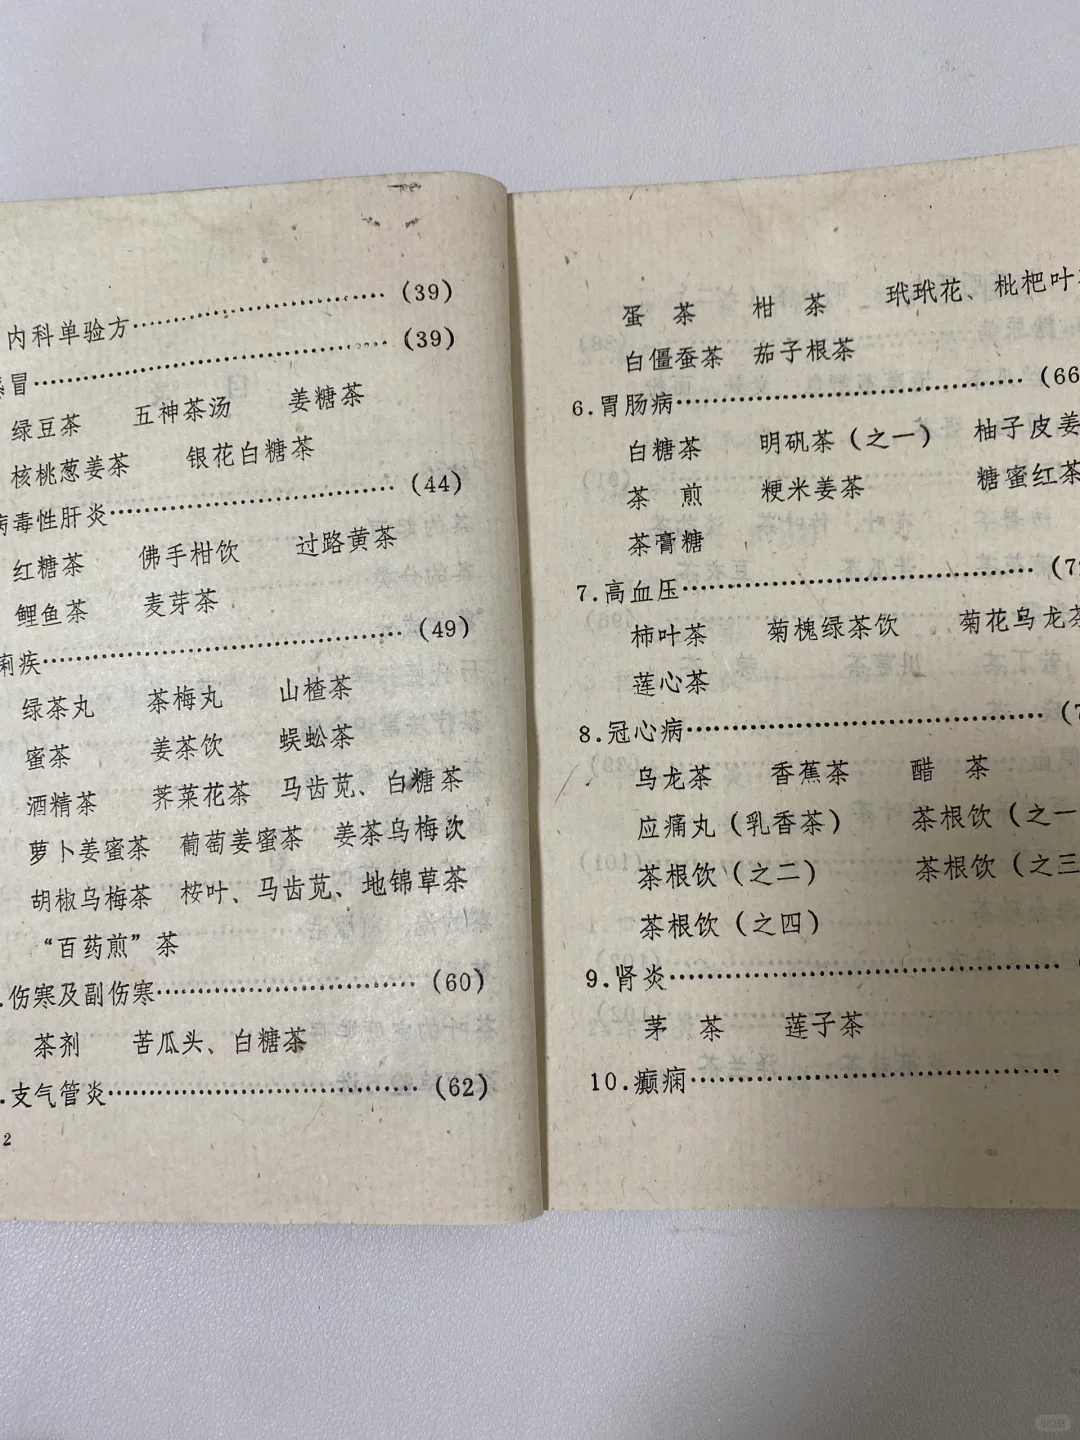 内科单验方……………………………(39)
感冒……………………………………(39)
绿豆茶 五神茶汤 姜糖茶
核桃葱姜茶 银花白糖茶
病毒性肝炎……………………………(44)
红糖茶 佛手柑饮 过路黄茶
鲤鱼茶 麦芽茶
痢疾……………………………………(49)
绿茶丸 茶梅丸 山楂茶
蜜茶 姜茶饮 蜈蚣茶
酒精茶 荠菜花茶 马齿苋、白糖茶
萝卜姜蜜茶 葡萄姜蜜茶 姜茶乌梅饮
胡椒乌梅茶 桉叶、马齿苋、地锦草茶
“百药煎”茶
.伤寒及副伤寒…………………………(60)
茶剂 苦瓜头、白糖茶
.支气管炎………………………………(62)
2
蛋 茶 柑 茶 玳玳花、枇杷叶
白僵蚕茶 茄子根茶
6.胃肠病…………………………………(66
白糖茶 明矾茶(之一) 柚子皮姜
茶 煎 粳米姜茶 糖蜜红茶
茶膏糖
7.高血压…………………………………(7
柿叶茶 菊槐绿茶饮 菊花乌龙茶
莲心茶
8.冠心病…………………………………(7
乌龙茶 香蕉茶 醋 茶
应痛丸(乳香茶) 茶根饮(之一
茶根饮(之二) 茶根饮(之三
茶根饮(之四)
9.肾炎……………………………………(
茅 茶 莲子茶
10.癫痫……………………………………